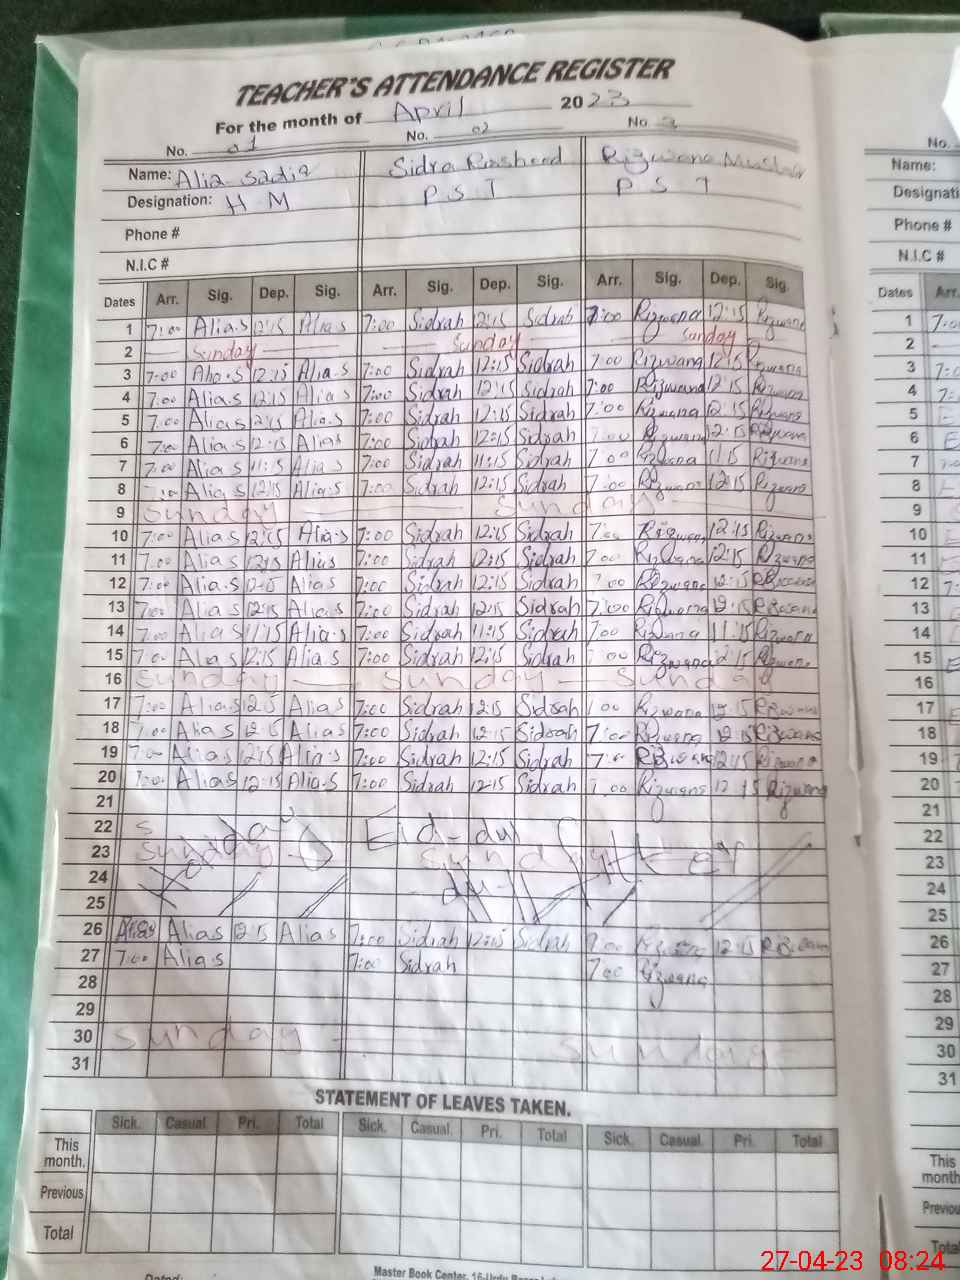 TEACHER'S ATTENDANCE REGISTER
For the month of April 2023
No. 01 No. 02 No. 3
Name: Alia Sadia Sidra Rasheed Rizwana
Designation: H M P S T P S T
Phone #
N.I.C #
Dates Arr. Sig. Dep. Sig. Arr. Sig. Dep. Sig. Arr. Sig. Dep. Sig.
1 7:00 Alia.S 12:15 Alia.S 7:00 Sidrah 12:15 Sidrah 7:00 Rizwana 12:15 Rizwana
2 Sunday Sunday Sunday
3 7:00 Alia.S 12:15 Alia.S 7:00 Sidrah 12:15 Sidrah 7:00 Rizwana 12:15 Rizwana
4 7:00 Alia.S 12:15 Alia.S 7:00 Sidrah 12:15 Sidrah 7:00 Rizwana 12:15 Rizwana
5 7:00 Alia.S 12:15 Alia.S 7:00 Sidrah 12:15 Sidrah 7:00 Rizwana 12:15 Rizwana
6 7:00 Alia.S 12:15 Alia.S 7:00 Sidrah 12:15 Sidrah 7:00 Rizwana 12:15 Rizwana
7 7:00 Alia.S 11:15 Alia.S 7:00 Sidrah 11:15 Sidrah 7:00 Rizwana 11:15 Rizwana
8 7:00 Alia.S 12:15 Alia.S 7:00 Sidrah 12:15 Sidrah 7:00 Rizwana 12:15 Rizwana
9 Sunday Sunday
10 7:00 Alia.S 12:15 Alia.S 7:00 Sidrah 12:15 Sidrah 7:00 Rizwana 12:15 Rizwana
11 7:00 Alia.S 12:15 Alia.S 7:00 Sidrah 12:15 Sidrah 7:00 Rizwana 12:15 Rizwana
12 7:00 Alia.S 12:15 Alia.S 7:00 Sidrah 12:15 Sidrah 7:00 Rizwana 12:15 Rizwana
13 7:00 Alia.S 12:15 Alia.S 7:00 Sidrah 12:15 Sidrah 7:00 Rizwana 12:15 Rizwana
14 7:00 Alia.S 11:15 Alia.S 7:00 Sidrah 11:15 Sidrah 7:00 Rizwana 11:15 Rizwana
15 7:00 Alia.S 12:15 Alia.S 7:00 Sidrah 12:15 Sidrah 7:00 Rizwana 12:15 Rizwana
16 Sunday Sunday Sunday
17 7:00 Alia.S 12:15 Alia.S 7:00 Sidrah 12:15 Sidrah 7:00 Rizwana 12:15 Rizwana
18 7:00 Alia.S 12:15 Alia.S 7:00 Sidrah 12:15 Sidrah 7:00 Rizwana 12:15 Rizwana
19 7:00 Alia.S 12:15 Alia.S 7:00 Sidrah 12:15 Sidrah 7:00 Rizwana 12:15 Rizwana
20 7:00 Alia.S 12:15 Alia.S 7:00 Sidrah 12:15 Sidrah 7:00 Rizwana 12:15 Rizwana
21
22 Eid-dul
23 Sunday Sunday
24
25
26 Alia.S 12:15 Alia.S 7:00 Sidrah 12:15 Sidrah Rizwana 12:15 Rizwana
27 7:00 Alia.S 7:00 Sidrah 7:00 Rizwana
28
29
30 Sunday Sunday
31
STATEMENT OF LEAVES TAKEN.
Sick. Casual. Pri. Total Sick. Casual. Pri. Total Sick. Casual. Pri. Total
This month.
Previous
Total
Dated:
Master Book Center, 16-Urdu
No.
Name:
Designati
Phone #
N.I.C #
Dates Arr.
1 7:0
2
3
4
5
6
7
8
9
10
11
12
13
14
15
16
17
18
19
20
21
22
23
24
25
26
27
28
29
30
31
This
month
Previou
Total
27-04-23 08:24